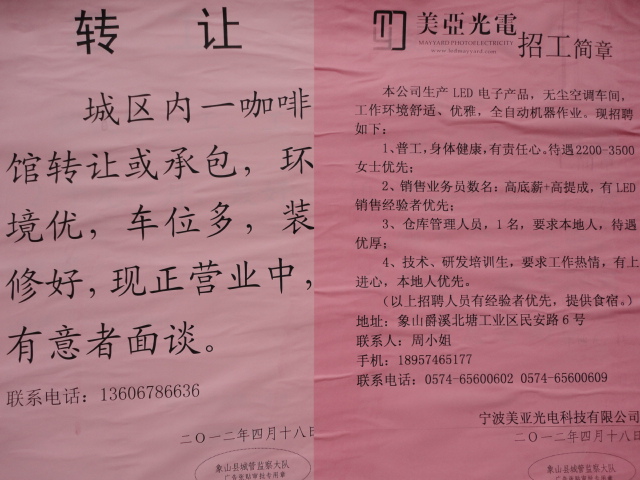 转 让
城区内一咖啡
馆转让或承包，环
境优，车位多，装
修好，现正营业中，
有意者面谈。
联系电话：13606786636
二○一二年四月十八日
象山县城管监察大队
广告张贴审批专用章
美亞光電
MAYYARD PHOTOELECTRICITY
www.ledmayyard.com
招工简章
本公司生产 LED 电子产品，无尘空调车间，
工作环境舒适、优雅，全自动机器作业。现招聘
如下：
1、普工，身体健康，有责任心。待遇2200-3500
女士优先；
2、销售业务员数名：高底薪+高提成，有LED
销售经验者优先；
3、仓库管理人员，1名，要求本地人，待遇
优厚；
4、技术、研发培训生，要求工作热情，有上
进心，本地人优先。
（以上招聘人员有经验者优先，提供食宿。）
地址：象山爵溪北塘工业区民安路6号
联系人：周小姐
手机：18957465177
联系电话：0574-65600602 0574-65600609
宁波美亚光电科技有限公司
二○一二年四月十八日
象山县城管监察大队
广告张贴审批专用章